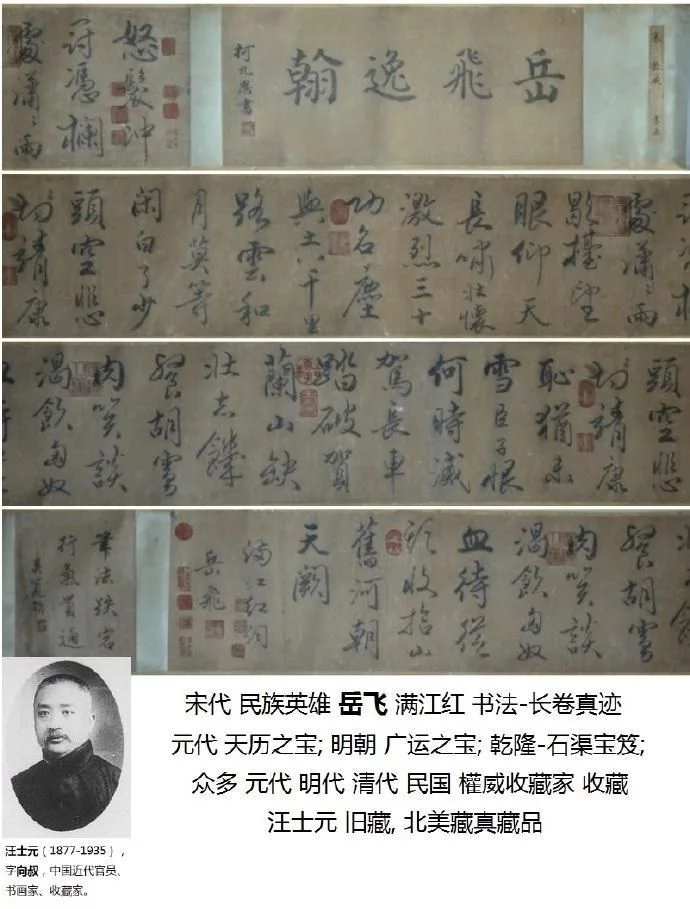 岳飛逸翰
柯九思書
怒髮沖
冠憑欄
處瀟瀟雨
處瀟瀟雨
歇擡望
眼仰天
長嘯壯懷
激烈三十
功名塵
與土八千里
路雲和
月莫等
闲白了少
頭空悲
切靖康
頭空悲
切靖康
恥猶未
雪臣子恨
何時滅
駕長車
踏破賀
蘭山缺
壯志饑
餐胡虜
肉笑談
渴飲匈奴
餐胡虜
肉笑談
渴飲匈奴
血待從
頭收拾山
舊河朝
天闕
滿江紅詞
岳飛
筆法跌宕
行氣貫通
宋代 民族英雄 岳飞 满江红 书法-长卷真迹
元代 天历之宝; 明朝 广运之宝; 乾隆-石渠宝笈;
众多 元代 明代 清代 民国 權威收藏家 收藏
汪士元 旧藏, 北美藏真藏品
汪士元（1877-1935），
字向叔，中国近代官员、
书画家、收藏家。